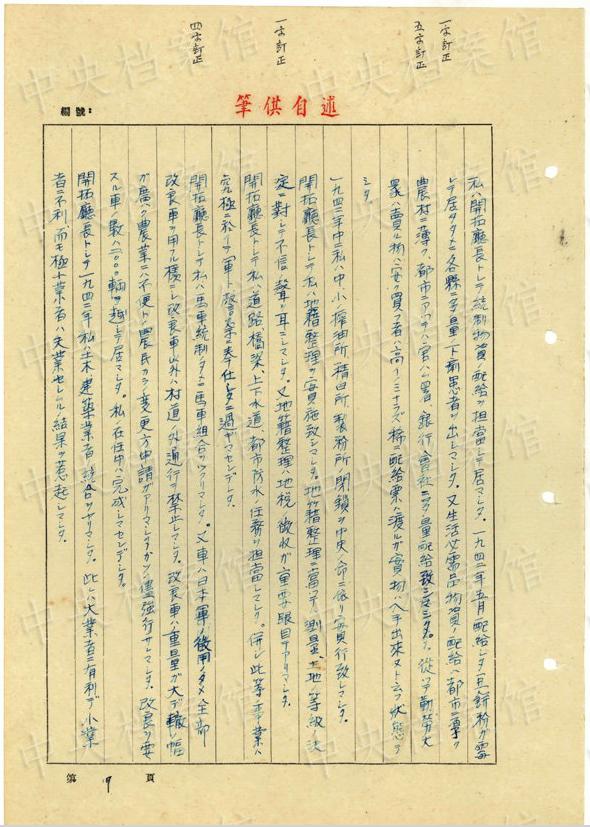 一字訂正
五字訂正
一字訂正
四字訂正
述自供筆
編號:
私ハ開拓廳長トシテ統制物資ノ配給ヲ担當シテ居マシタ。一九四二年五月配給シタ豆餅粉ガ霉
シテ居タタメニ各縣ニ多量ノ下痢患者ヲ出シマシタ。又生活必需品物資ノ配給ハ都市ニ厚ク
農村ニ薄ク、都市ニアッテハ官公署、銀行會社ニ多量配給致シマシタ。従ッテ勤勞大
衆ハ賣ル物ハ安ク買フ者ハ高イノミナラズ稀ニ配給票ハ渡ルガ實物ハ入手出来ヌト云フ状態デ
シタ。
一九四二年中ニ私ハ中、小ノ搾油所、精白所、製粉所ノ閉鎖ヲ中央ノ命ニ依リ實行致シマシタ。
開拓廳長トシテ私ハ地籍整理ヲ實施致シマシタ。地籍整理ニ當ッテハ測量、土地等級ノ決
定ニ對シテ不信ノ聲ヲ耳ニシマシタ。又地籍整理ハ地税ノ徴收ガ重要眼目デアリマシタ。
開拓廳長トシテ私ハ道路橋梁、上下水道、都市防水ノ任務ヲ担當シマシタ。併シ此等ノ事業ハ
究極ニ於イテ軍ト警察ニ奉仕シタニ過ギマセンデシタ。
開拓廳長トシテ私ハ馬車統制ノタメニ馬車組合ヲツクリマシタ。又車ハ日本軍ノ徴用ノタメ全部
改良車ヲ用フル様ニシ改良車以外ハ村道ノ外通行ヲ禁止シマシタ。改良車ハ重量ガ大デ轍ノ幅
ガ廣ク農業ニハ不便デ農民カラ変更方申請ガアリマシタガ強行サレマシタ。改良ヲ要
スル車ノ數ハ二〇〇〇輌ヲ越シテ居マシタ。私ノ在任中ハ完成シマセンデシタ。
開拓廳長トシテ一九四二年私ハ土木建築業者ノ統合ヲヤリマシタ。此レハ大業者ニ有利デ小業
者ニ不利而モ極小業者ハ失業セシムル結果ヲ惹起シマシタ。
第 17 頁
中央档案馆